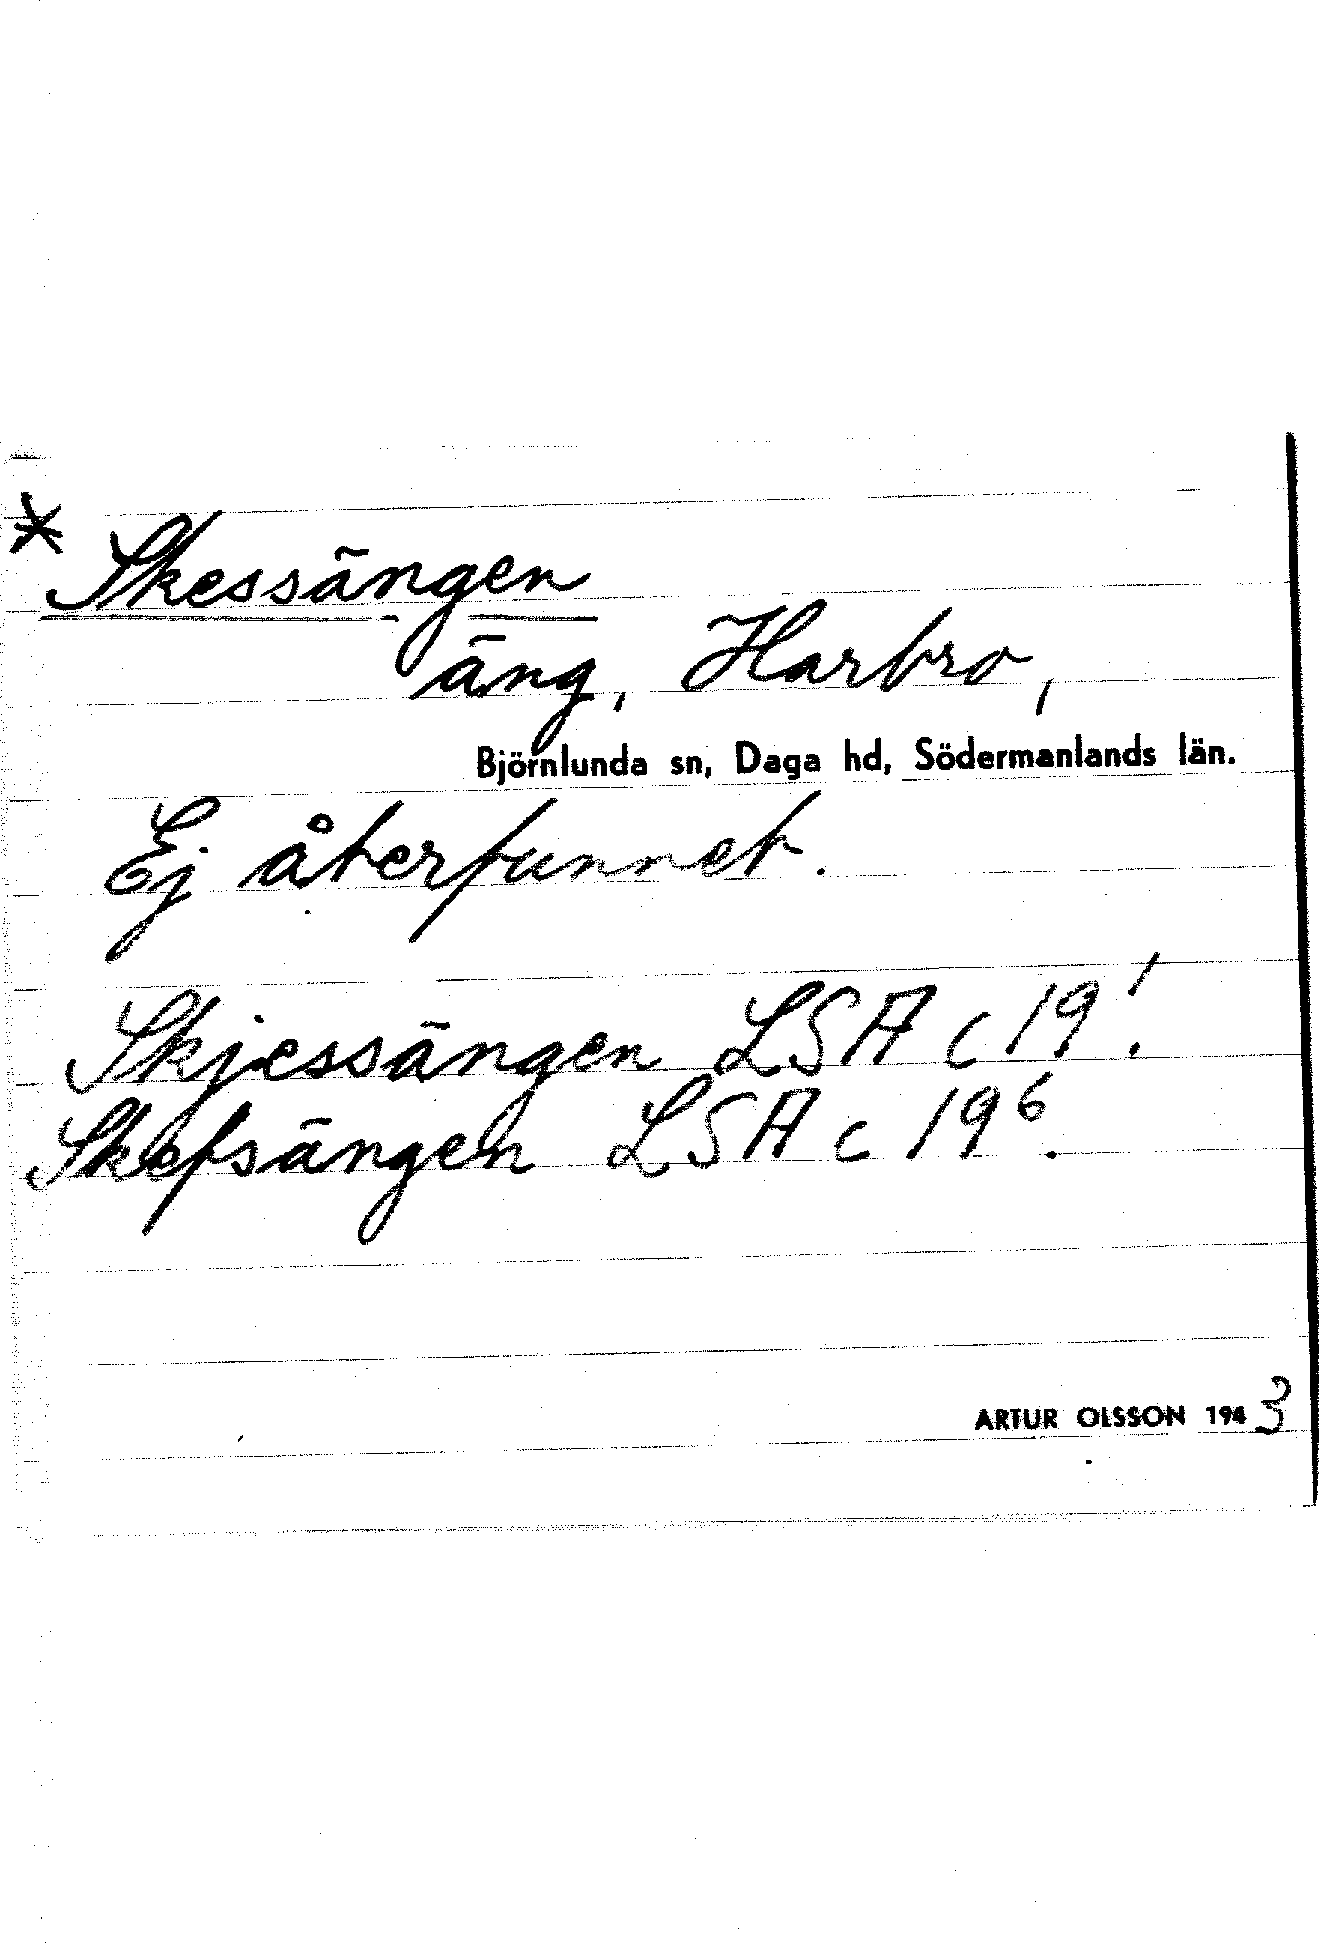 * Skessängen
äng, Harbro,
Björnlunda sn, Daga hd, Södermanlands län.
Ej återfunnet.
Skjessängen LSA c 19¹.
Skefsängen LSA c 19⁶.
ARTUR OLSSON 1943